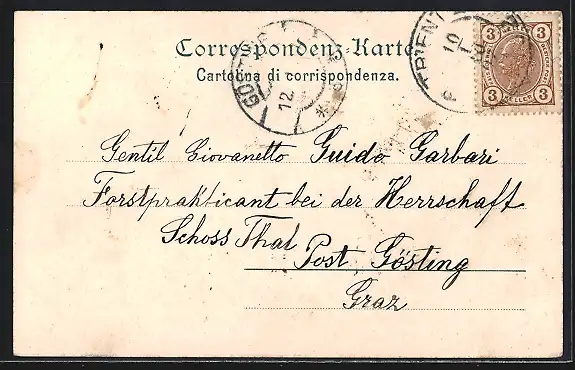 Correspondenz-Karte
Cartolina di corrispondenza.
TRIENT
10
12
3 3
HELLER
3 3
Gentil Giovanetto Guido Garbari
Forstprakticant bei der Herrschaft
Schoss Thal Post Gösting
Graz